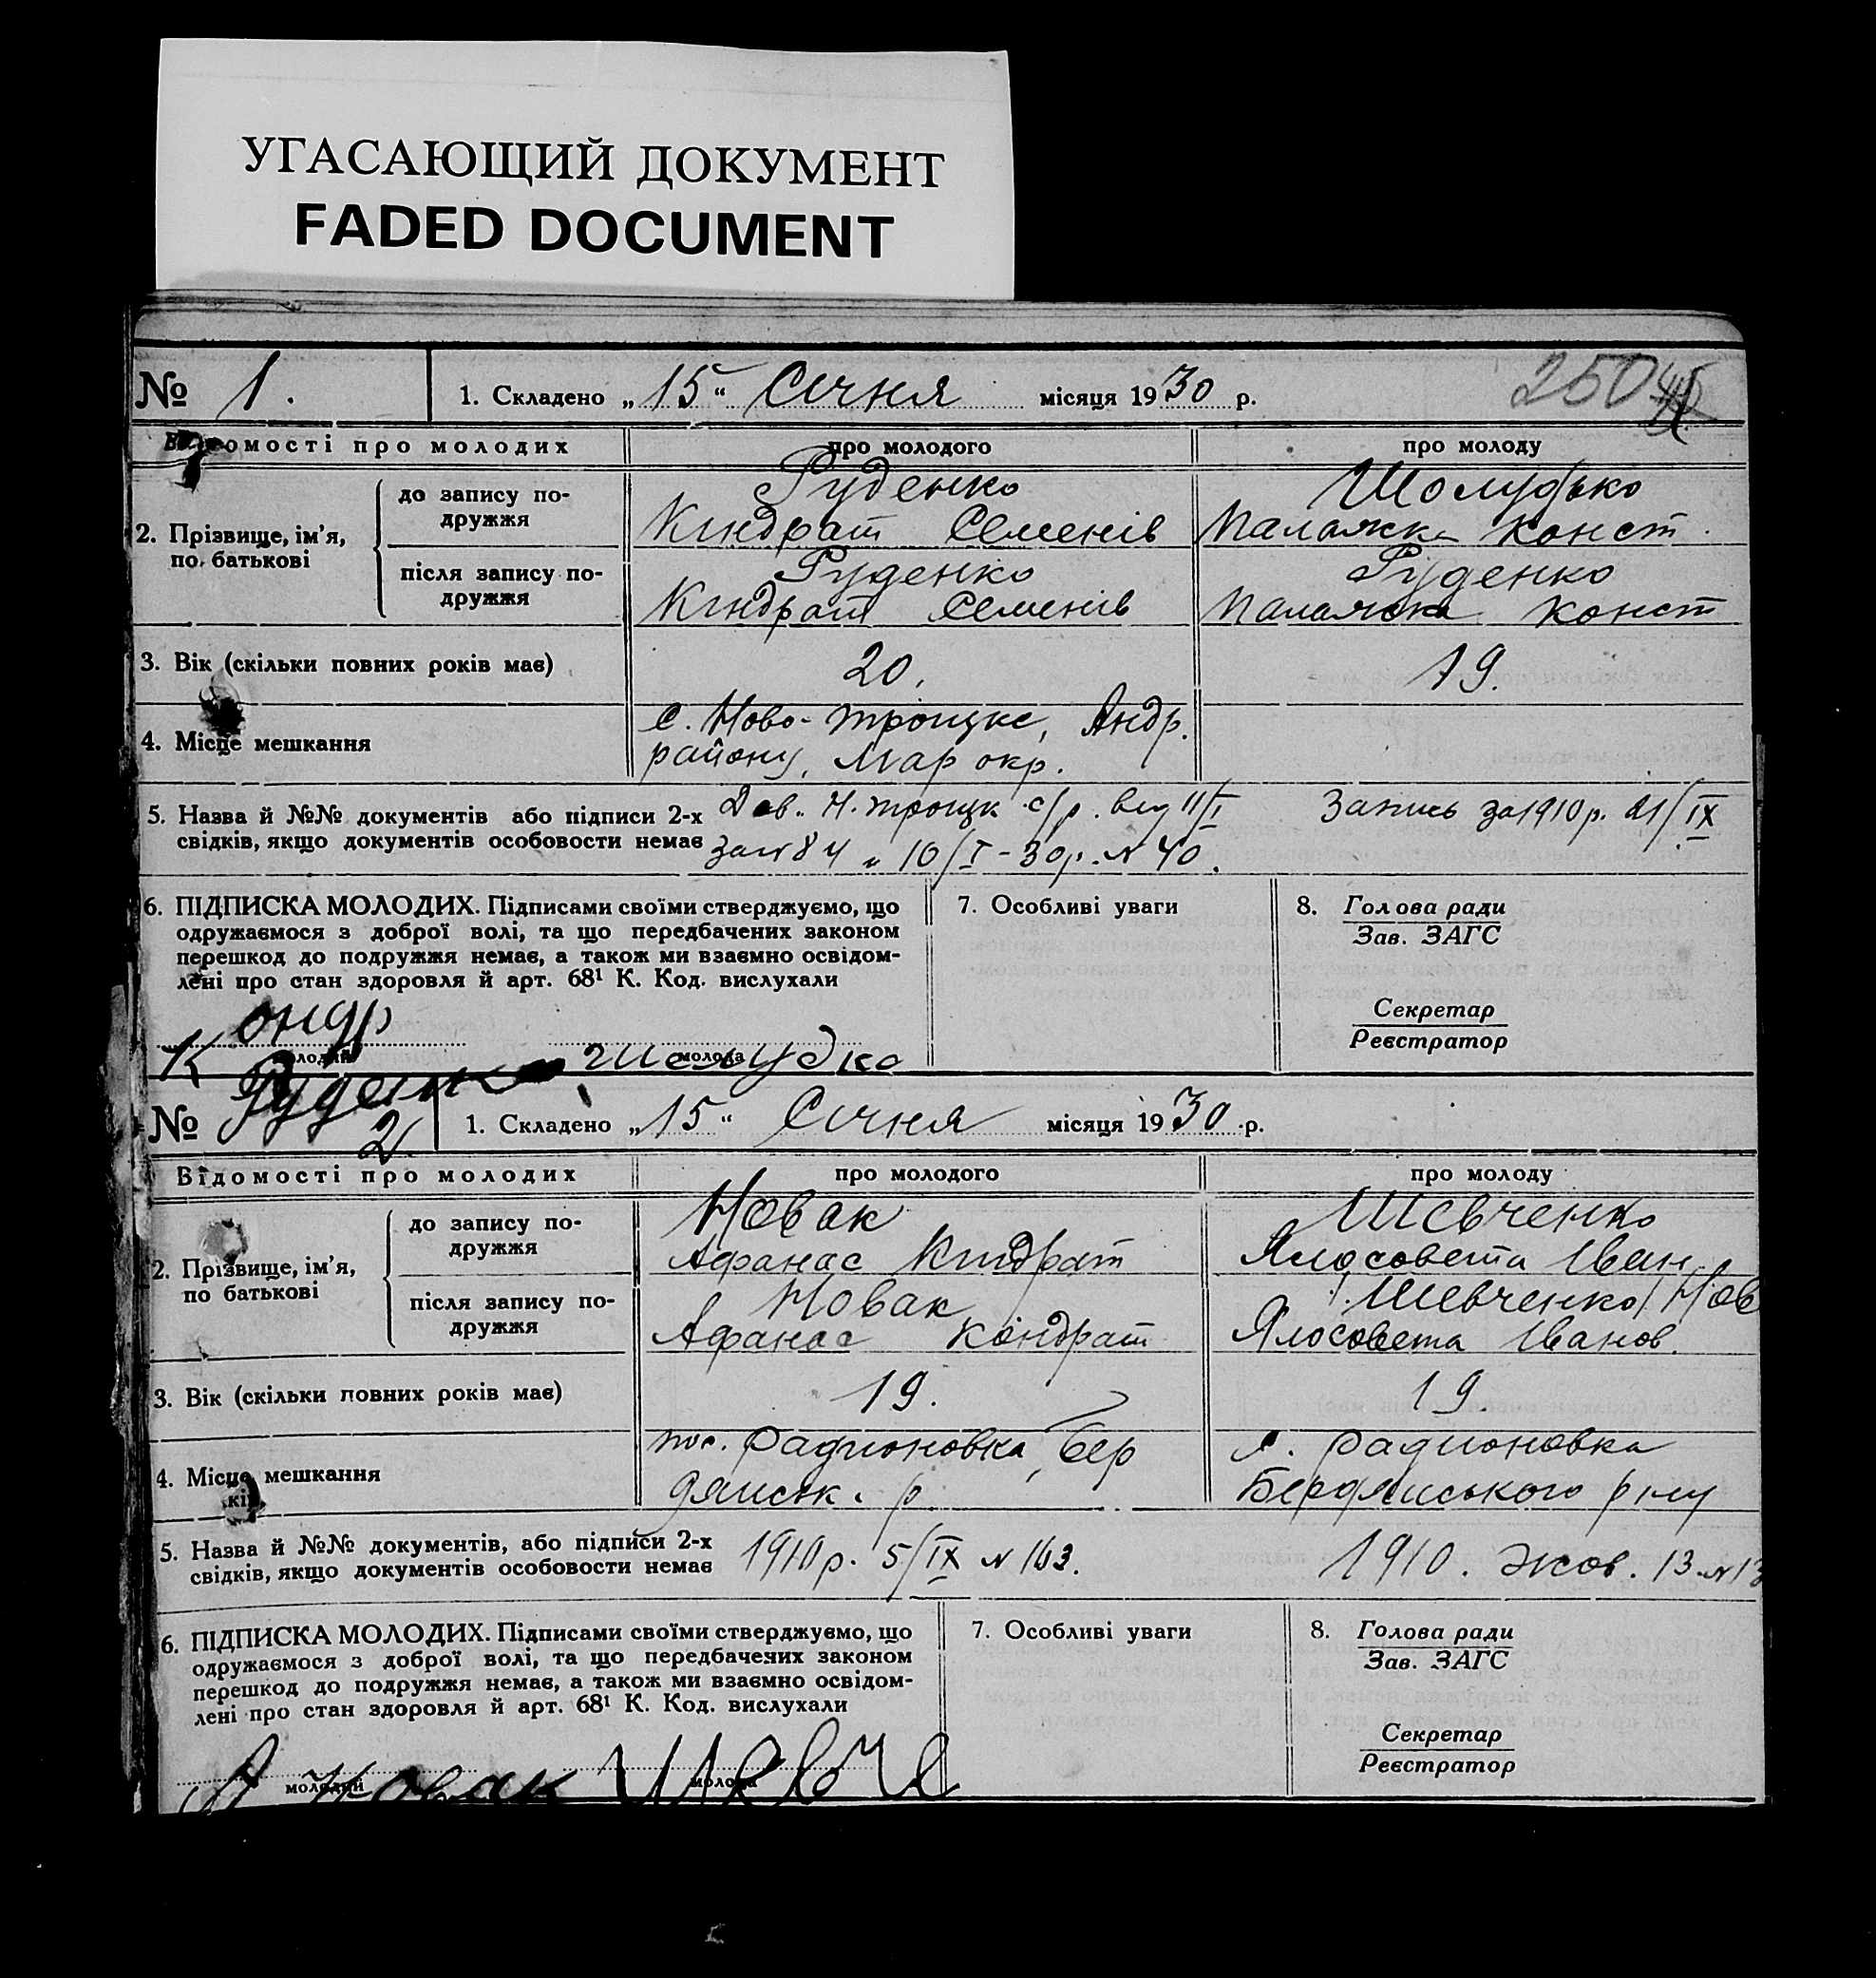 УГАСАЮЩИЙ ДОКУМЕНТ
FADED DOCUMENT
№ 1. 1. Складено „15“ Січня місяця 1930 р. 250
Відомості про молодих про молодого про молоду
2. Прізвище, ім’я, по батькові
до запису по-
дружжя
Руденко
Кіндрат Семенів
Шолудько
Палажка Конст.
після запису по-
дружжя
Руденко
Кіндрат Семенів
Руденко
Палажка Конст
3. Вік (скільки повних років має) 20. 19.
4. Місце мешкання
с. Ново-Троицке, Андр.
району, Мар окр.
5. Назва й №№ документів або підписи 2-х
свідків, якщо документів особовости немає
Дов. Н. Троицк с/р. від 11/I
за № 84 и 10/I-30р. № 40.
Запись за 1910 р. 21/IX
6. ПІДПИСКА МОЛОДИХ. Підписами своїми стверджуємо, що
одружаємося з доброї волі, та що передбачених законом
перешкод до подружжя немає, а також ми взаємно освідом-
лені про стан здоровля й арт. 68¹ К. Код. вислухали
Кондр
молодий
Руденко
молода
шолудко
7. Особливі уваги
8. Голова ради
Зав. ЗАГС
Секретар
Реєстратор
№ 2 1. Складено „15“ Січня місяця 1930 р.
Відомості про молодих про молодого про молоду
2. Прізвище, ім’я,
по батькові
до запису по-
дружжя
Новак
Афанас Киндрат
Шевченко
Ялосовета Іван
після запису по-
дружжя
Новак
Афанас Кондрат
Шевченко/Нов
Ялосовета Іванов.
3. Вік (скільки повних років має) 19. 19.
4. Місце мешкання
пос. Радионовка, Бер
дянськ. р.
Радионовка
Бердянського р-ну
5. Назва й №№ документів, або підписи 2-х
свідків, якщо документів особовости немає
1910 р. 5/IX № 163.
1910. Жов. 13. № 13
6. ПІДПИСКА МОЛОДИХ. Підписами своїми стверджуємо, що
одружаємося з доброї волі, та що передбачених законом
перешкод до подружжя немає, а також ми взаємно освідом-
лені про стан здоровля й арт. 68¹ К. Код. вислухали
А Новак
молодий
Шевче
молода
7. Особливі уваги
8. Голова ради
Зав. ЗАГС
Секретар
Реєстратор